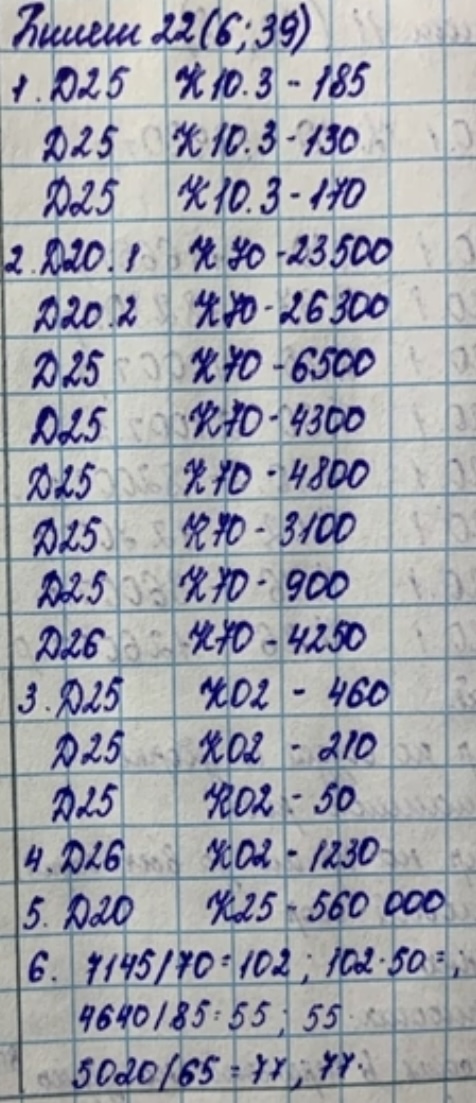 Билет 22 (6; 39)
1. Д25 К10.3 - 185
Д25 К10.3 - 130
Д25 К10.3 - 170
2. Д20.1 К70 - 23500
Д20.2 К70 - 26300
Д25 К70 - 6500
Д25 К70 - 4300
Д25 К70 - 4800
Д25 К70 - 3100
Д25 К70 - 900
Д26 К70 - 4250
3. Д25 К02 - 460
Д25 К02 - 210
Д25 К02 - 50
4. Д26 К02 - 1230
5. Д20 К25 - 560 000
6. 7145/70 = 102 ; 102·50 = ;
4640/85 = 55 ; 55·
5020/65 = 77, 77·